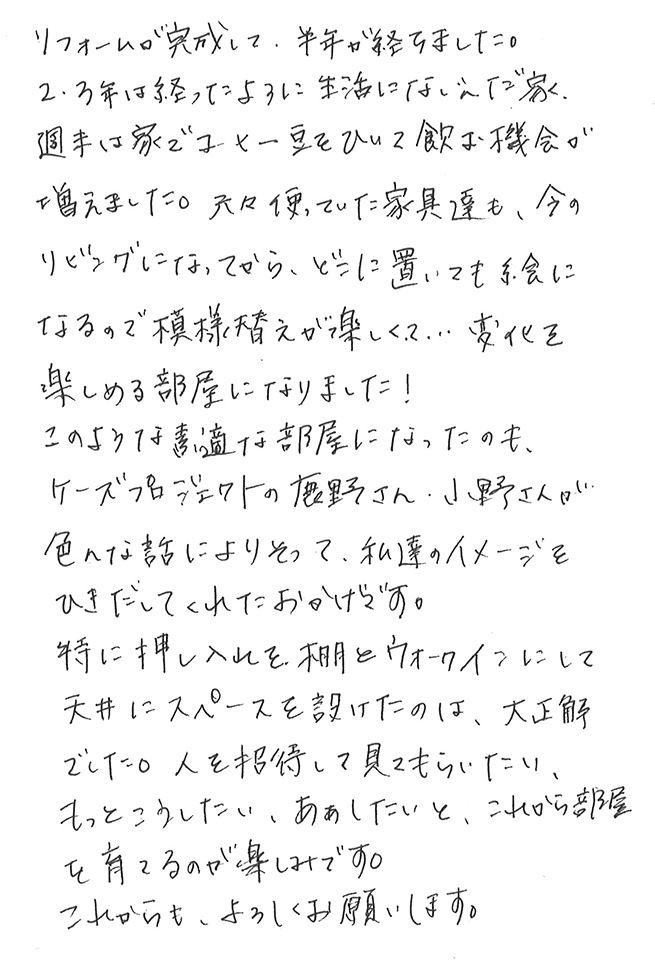 リフォームが完成して、半年が経ちました。
2・3年は経ったように生活になじんだ家、
週末は家でコーヒー豆をひいて飲む機会が
増えました。元々使っていた家具達も、今の
リビングになってから、どこに置いても絵に
なるので模様替えが楽しくて… 変化を
楽しめる部屋になりました！
このような素適な部屋になったのも、
ケーズプロジェクトの鹿野さん・小野さんが
色んな話によりそって、私達のイメージを
ひきだしてくれたおかげです。
特に押し入れを棚とウォークインにして
天井にスペースを設けたのは、大正解
でした。人を招待して見てもらいたい、
もっとこうしたい、あぁしたいと、これから部屋
を育てるのが楽しみです。
これからも、よろしくお願いします。